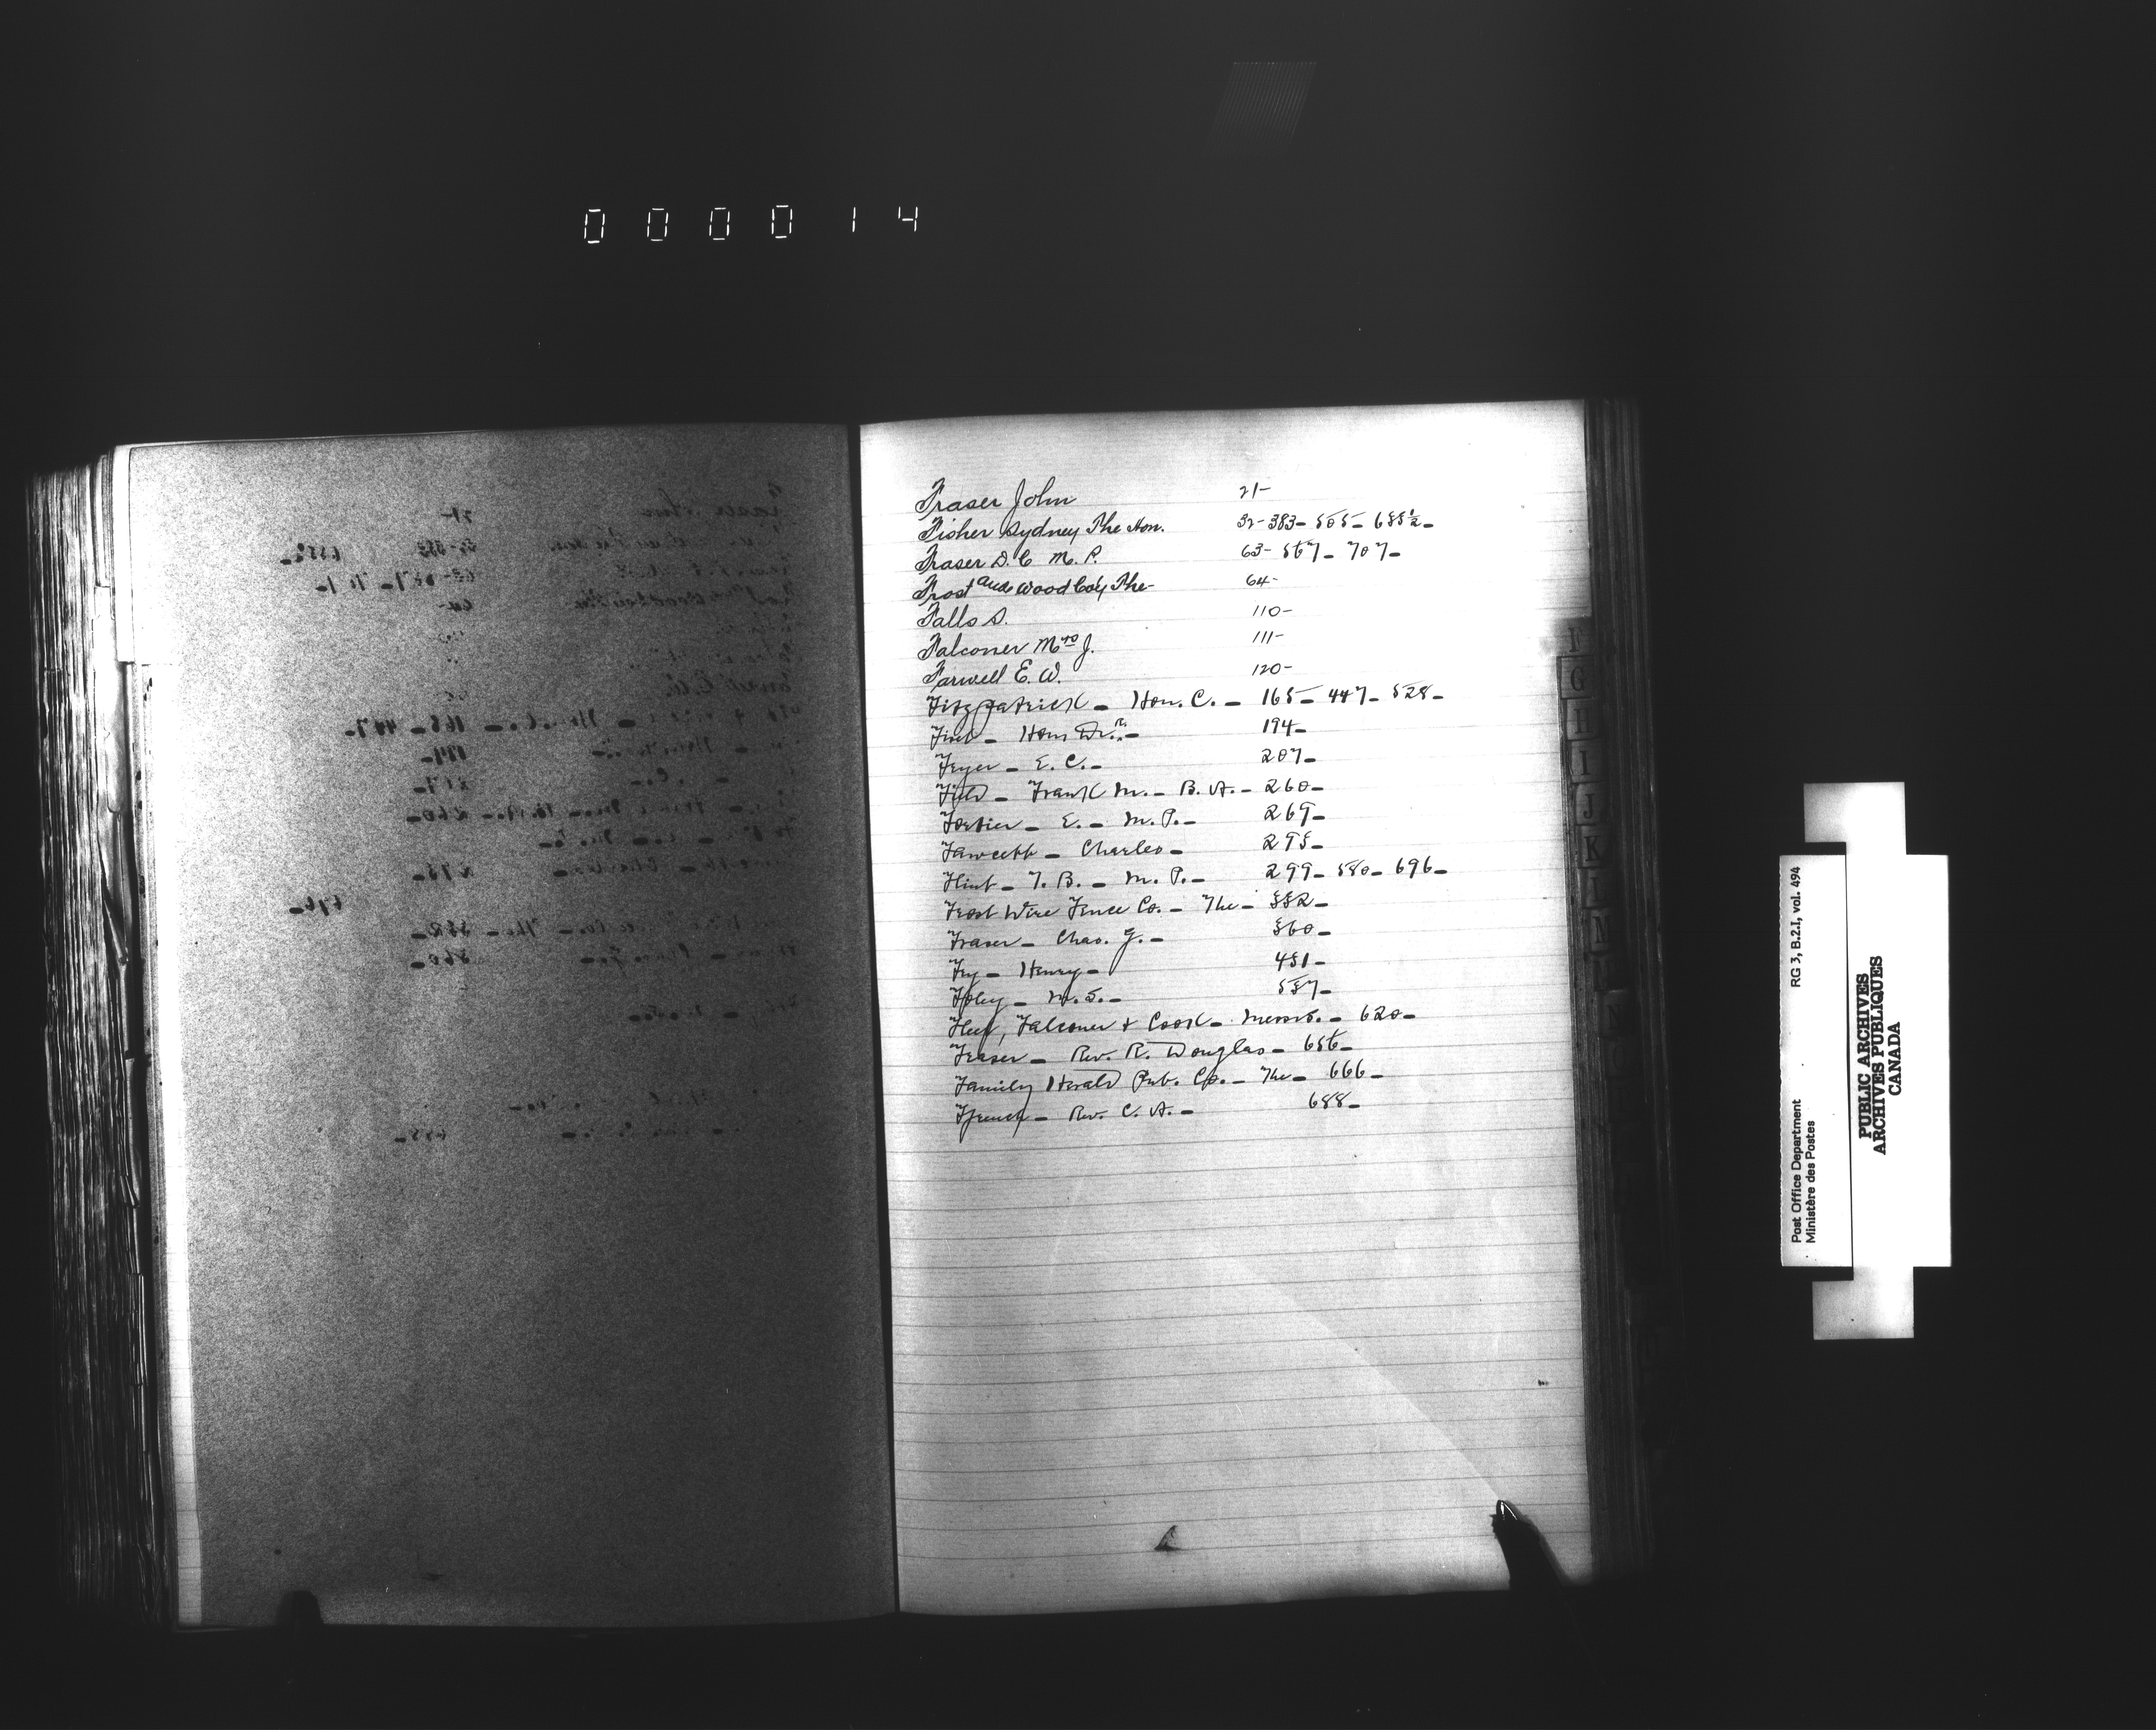 000014
Fraser John 21-
Fisher Sydney The Hon. 32-383-505-685½-
Fraser D. C. M. P. 63-567-707-
Frost and Wood Co'y The- 64-
Falls S. 110-
Falconer Mrs J. 111-
Farwell E. W. 120-
Fitzpatrick - Hon. C. - 165-447-528-
Hon. 194-
Feyer - E. C. - 207-
Field - Frank M. - B. A. - 260-
Fortier - E. - M. P. - 269-
Fawcett - Charles - 295-
Flint - T. B. - M. P. - 299-580-696-
Frost Wire Fence Co. - The - 352-
Fraser - Chas. G. - 360-
Fry - Henry - 451-
Foley - M. S. - 557-
Fleet, Falconer & Cook - Messrs. - 620-
Fraser - Rev. R. Douglas - 656-
Family Herald Pub. Co. - The - 666-
Ffrench - Rev. C. A. - 688-
F
G
H
I
J
K
L
N
Post Office Department
Ministère des Postes
RG 3, B.2.I, vol. 494
PUBLIC ARCHIVES
ARCHIVES PUBLIQUES
CANADA